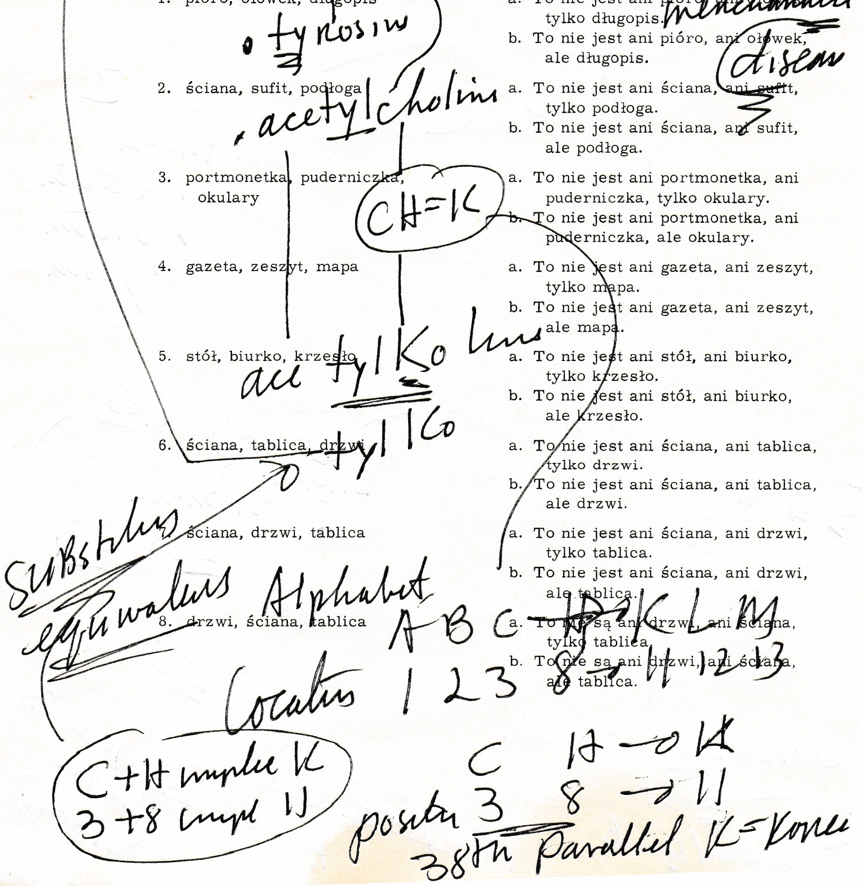 1. pióro, ołówek, długopis
tylko długopis.
b. To nie jest ani pióro, ani ołówek,
ale długopis.
• tyrosin
diseas
2. ściana, sufit, podłoga
a. To nie jest ani ściana, ani sufit,
tylko podłoga.
b. To nie jest ani ściana, ani sufit,
ale podłoga.
acetylcholine
3. portmonetka, puderniczka,
okulary
a. To nie jest ani portmonetka, ani
puderniczka, tylko okulary.
b. To nie jest ani portmonetka, ani
puderniczka, ale okulary.
CH=K
4. gazeta, zeszyt, mapa
a. To nie jest ani gazeta, ani zeszyt,
tylko mapa.
b. To nie jest ani gazeta, ani zeszyt,
ale mapa.
5. stół, biurko, krzesło
a. To nie jest ani stół, ani biurko,
tylko krzesło.
b. To nie jest ani stół, ani biurko,
ale krzesło.
ace tylKo
tylKo
6. ściana, tablica, drzwi
a. To nie jest ani ściana, ani tablica,
tylko drzwi.
b. To nie jest ani ściana, ani tablica,
ale drzwi.
ściana, drzwi, tablica
a. To nie jest ani ściana, ani drzwi,
tylko tablica.
b. To nie jest ani ściana, ani drzwi,
ale tablica.
8. drzwi, ściana, tablica
a. To nie są ani drzwi, ani ściana,
tylko tablica.
b. To nie są ani drzwi, ani ściana,
ale tablica.
Alphabet
A B C → H → K L M
1 2 3 8 → 11 12 13
C + H K
3 + 8 11
C H → K
3 8 → 11
38th parallel K = Korea